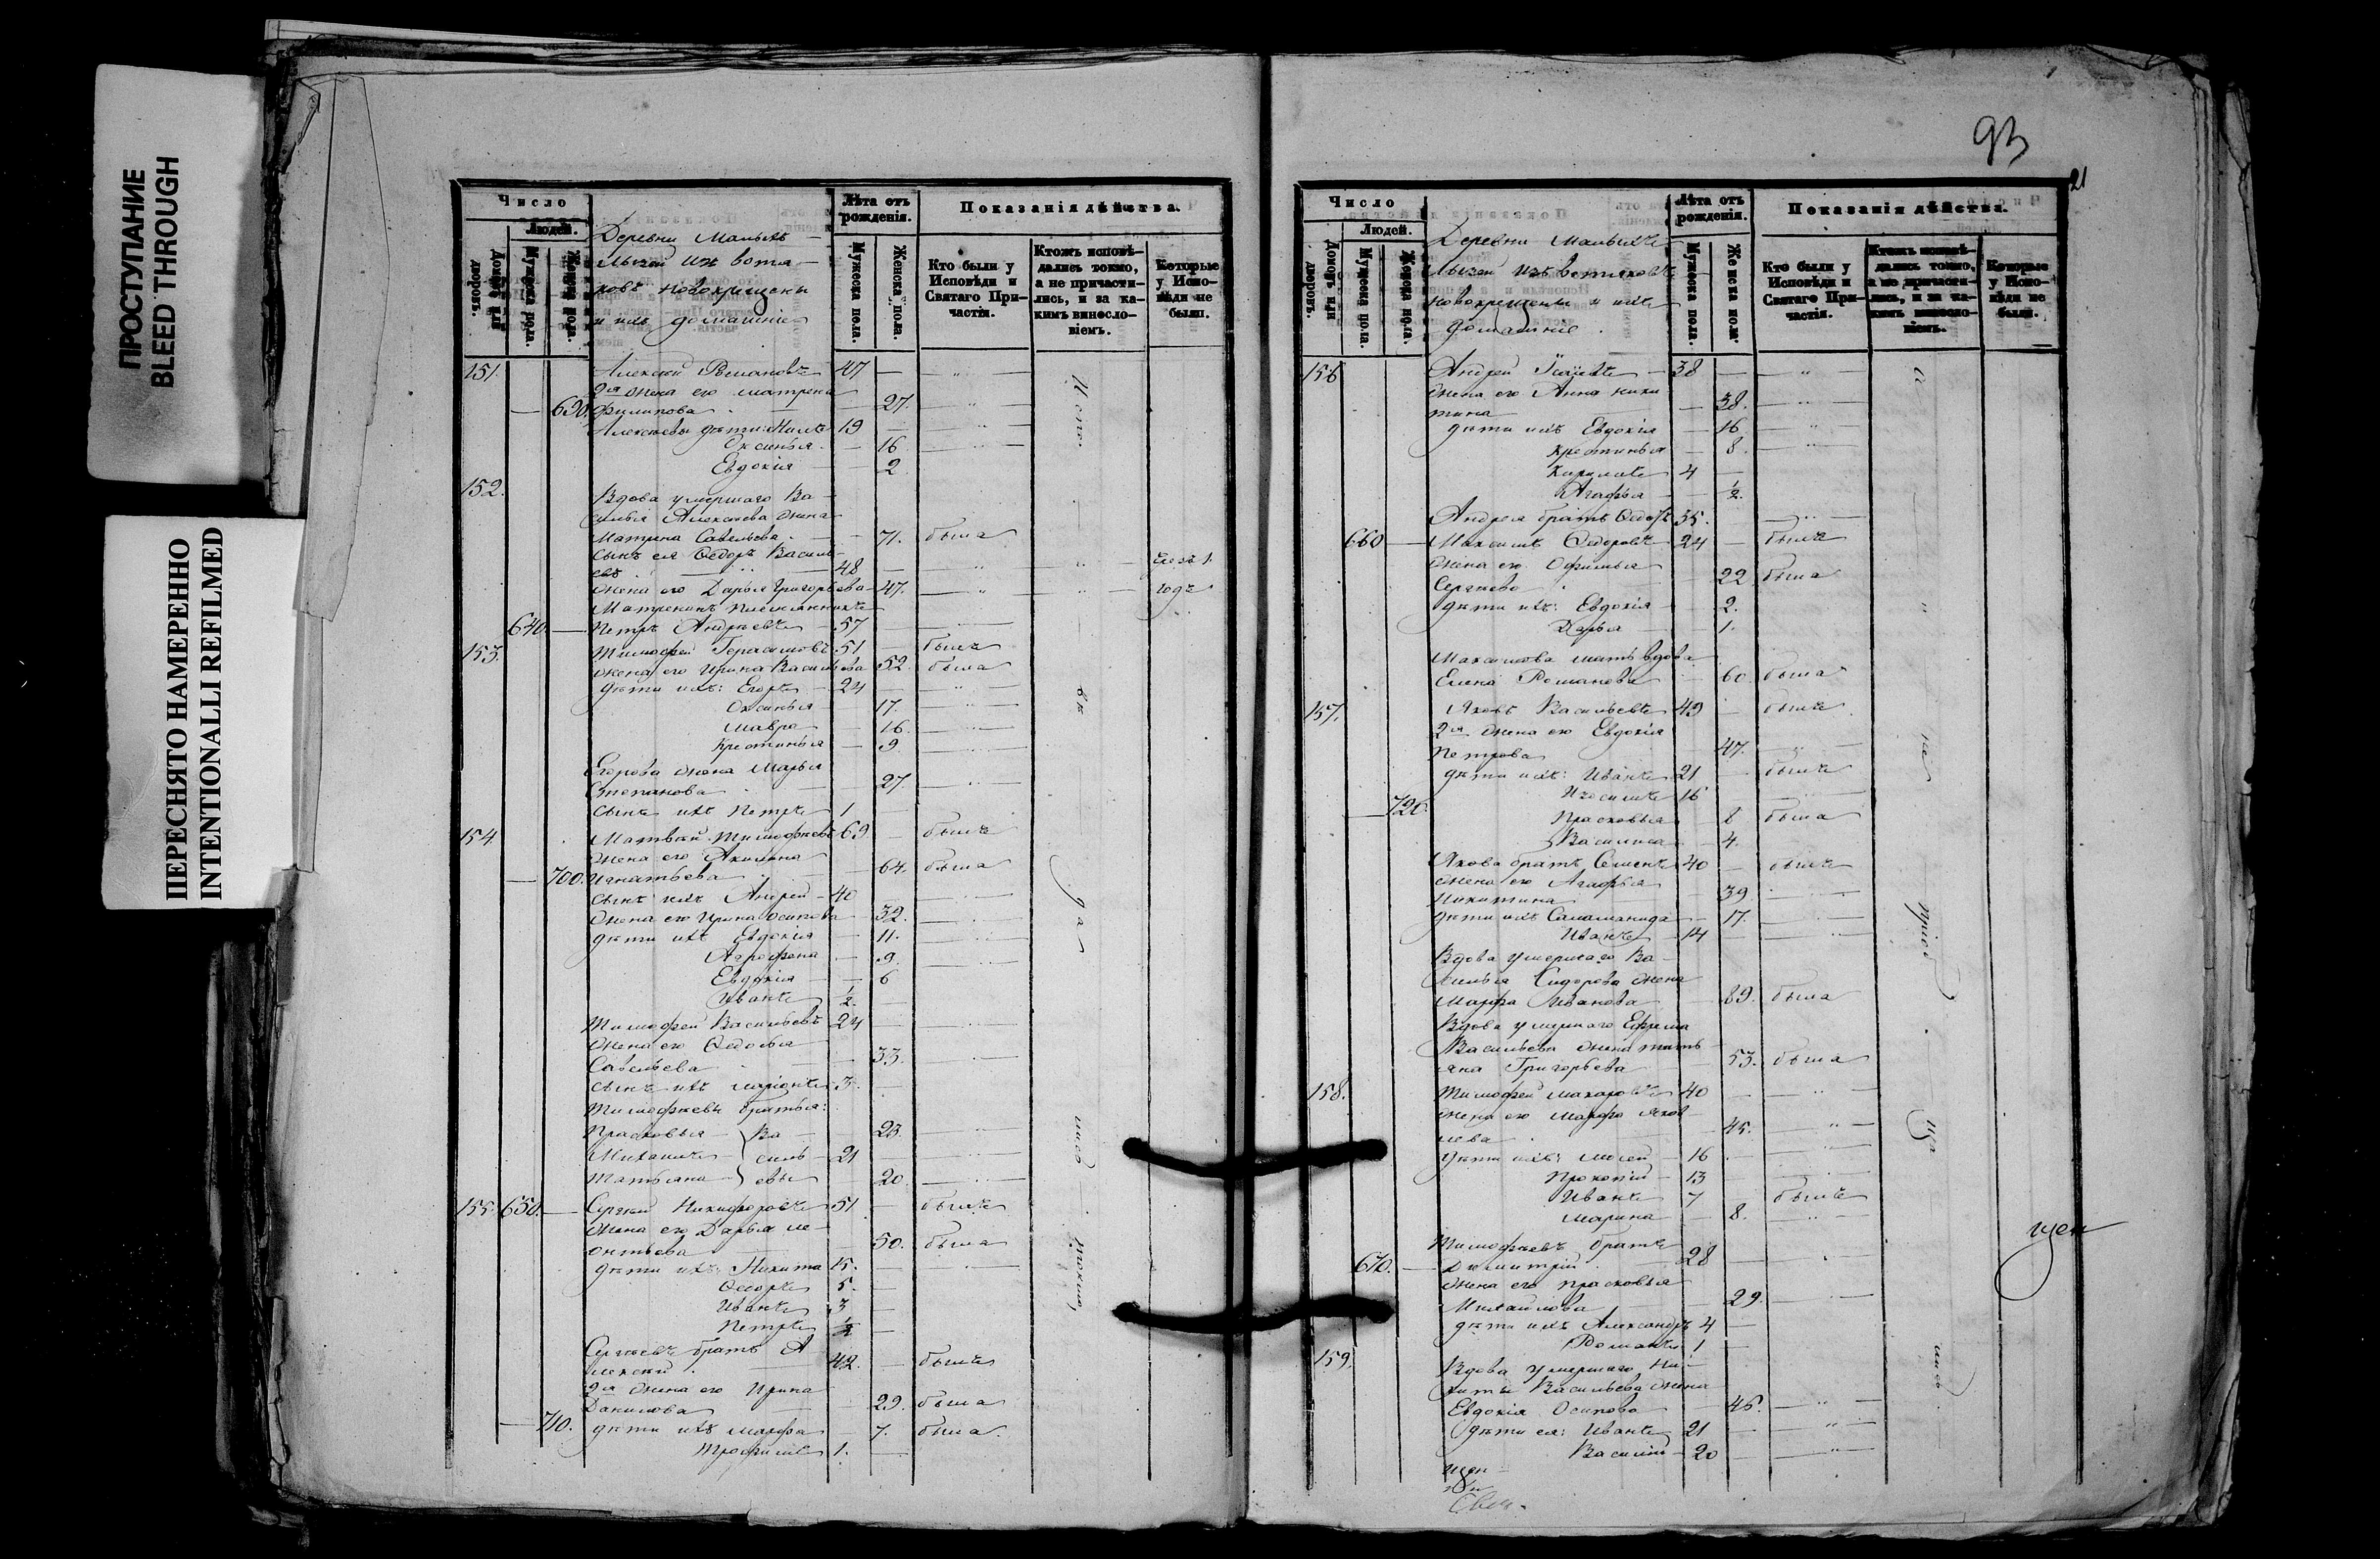 ПРОСТУПАНИЕ
BLEED THROUGH
ПЕРЕСНЯТО НАМЕРЕННО
INTENTIONALLI REFILMED
Число
Людей.
Домовъ или дворовъ.
Мужеска пола.
Женска пола.
Деревни
новокрещены
и ихъ домашніе
Лѣта отъ рожденія.
Мужеска пола.
Женска пола.
Показанія дѣйства.
Кто были у Исповѣди и Святаго Причастія.
Ктожъ исповѣдались токмо, а не причастились, и за какимъ винословіемъ.
Которые у Исповѣди не были.
151. Алексѣй Романовъ 47
2я жена его Матрена
690. Филипова 27.
Алексѣевы дѣти: 19
Оксинья 16
Евдокія 2
152. Вдова умершаго Ва-
силья Алексѣева жена
Матрена Савельева 71. была
Сынъ ея Ѳедоръ Василь-
евъ 48
жена его Дарья Григорьева 47. годъ
Матренинъ племянникъ
640. Петръ Андрѣевъ 57
153. Тимофей Герасимовъ 51 былъ
жена его Ирина Васильева 52. была
дѣти ихъ: Егоръ 24
Оксинья 17.
Мавра 16.
Крестинья 9.
Егорова жена Марья
Степанова 27.
сынъ ихъ Петръ 1
154. Матвѣй Тимофѣевъ 69 былъ
жена его Акилина
700. Игнатьева 64. была
сынъ ихъ Андрей 40
жена его Ирина Осипова 32.
дѣти ихъ Евдокія 11.
Агрофена 9.
Евдокія 6
Иванъ ½.
Тимофей Васильевъ 24
жена его Ѳедосья
Савельева 33.
сынъ ихъ 3.
Тимофѣевы братья:
Прасковья Ва- 23.
Михаилъ силь- 21
Татьяна евы 20.
155. 650. Сергѣй Никифоровъ 51 былъ
жена его Дарья Ле-
онтьева 50. была
дѣти ихъ: Никита 15.
Ѳедоръ 5.
Иванъ 3
Петръ ½
Сергѣевъ братъ А-
лексѣй 42. былъ
2я жена его Ирина
Данилова 29. была
710. дѣти ихъ Марфа 7. была.
Трофимъ 1.
93
21
Число
Людей.
Домовъ или дворовъ.
Мужеска пола.
Женска пола.
Деревни
изъ вотяковъ
новокрещены и ихъ
домашніе.
Лѣта отъ рожденія.
Мужеска пола.
Женска пола.
Показанія дѣйства.
Кто были у Исповѣди и Святаго Причастія.
Ктожъ исповѣдались токмо, а не причастились, и за какимъ винословіемъ.
Которые у Исповѣди не были.
156 Андрей 38
жена его Анна Ники-
тина 38.
дѣти ихъ Евдокія 16
Крестинья 8.
4
Агафья ½.
Андрея братъ 35.
660 Максимъ Ѳедоровъ 24 былъ
жена его Офимья
Сергѣева 22 была
дѣти ихъ: Евдокія 2.
Дарья 1.
Максимова мать вдова
Елена Романова 60 была
157. Яковъ Васильевъ 49 былъ
2я жена его Евдокія
Петрова 47.
дѣти ихъ: Иванъ 21 былъ
16
720. Прасковья 8 была
Василиса 4.
Якова братъ Семенъ 40 былъ
жена его Агафья
Никитина 39.
дѣти ихъ Саламанида 17.
Иванъ 14
Вдова умершаго Ва-
силья Сидорова жена
Марфа Иванова 89. была
Вдова умершаго Ефрема
Васильева жена Тать-
яна Григорьева 53. была
158. Тимофей Макаровъ 40
жена его Марфа Яков-
лева 45.
дѣти ихъ: 16
Прокопій 13
Иванъ 7 былъ
Марина 8.
Тимофѣевъ братъ
670. Димитрій 28
жена его Прасковья
Михайлова 29.
дѣти ихъ Александръ 4
Романъ 1
159. Вдова умершаго Ни-
киты Васильева жена
Евдокія Осипова 46.
дѣти ея: Иванъ 21
Василій 20
щен